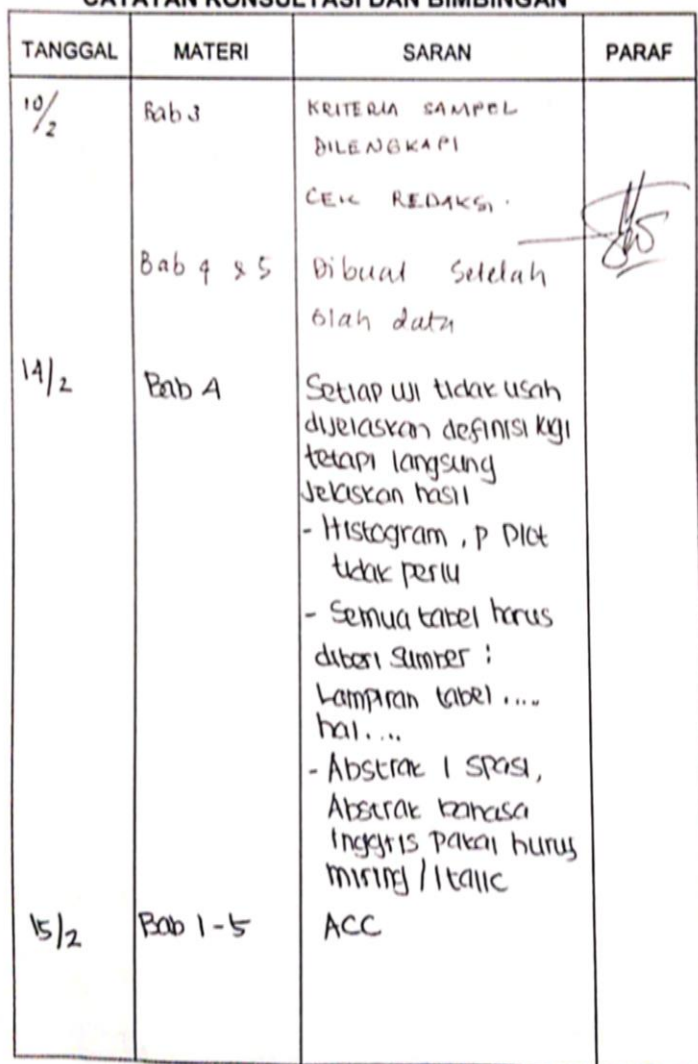 CATATAN KONSULTASI DAN BIMBINGAN
TANGGAL MATERI SARAN PARAF
10/2 Bab 3 KRITERIA SAMPEL
DILENGKAPI
CEK REDAKSI.
Bab 4 & 5 Dibuat Setelah
olah data
14/2 Bab 4 Setiap uji tidak usah
dijelaskan definisi lagi
tetapi langsung
Jelaskan hasil
- Histogram, P Plot
tidak perlu
- Semua tabel harus
diberi Sumber :
Lampiran tabel ....
hal....
- Abstrak 1 spasi,
Abstrak bahasa
Inggris pakai huruf
miring / Italic
15/2 Bab 1-5 ACC